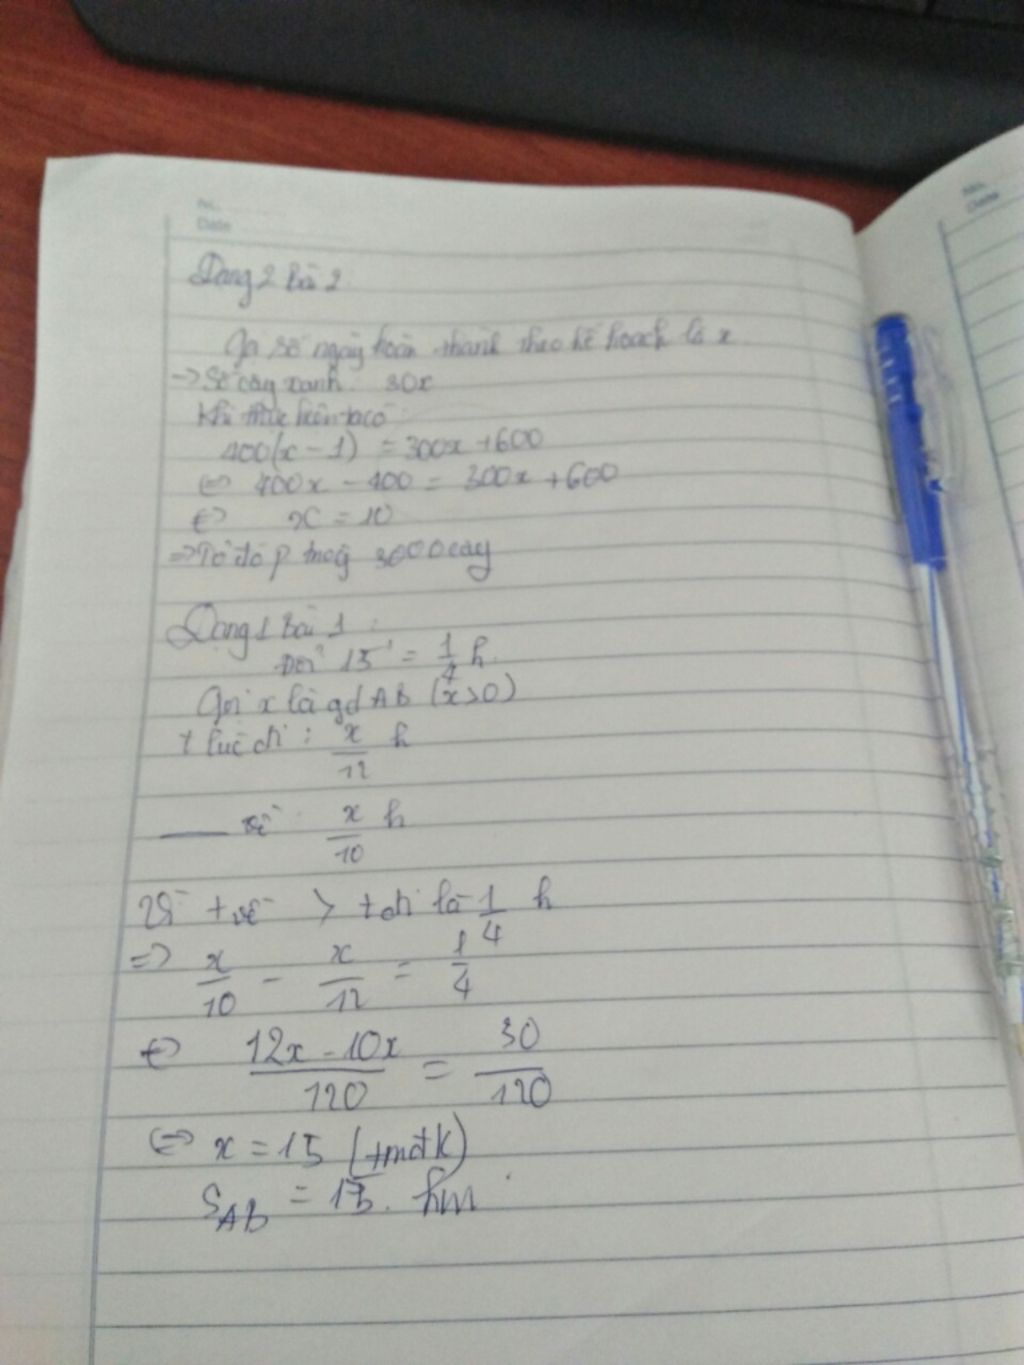 No.
Date
Dạng 2 bài 2
Gọi số ngày hoàn thành theo kế hoạch là x
-> Số cây xanh: 30x
Khi thực hiện ta có:
400(x - 1) = 300x + 600
<=> 400x - 400 = 300x + 600
<=> x = 10
=> Tổ đó p trồng 3000 cây
Dạng 1 bài 1:
Đổi 15' = 1/4 h.
Gọi x là qđ AB (x>0)
t lúc đi : x/12 h
___ về : x/10 h
Vì t về > t đi là 1/4 h
=> x/10 - x/12 = 1/4
<=> (12x - 10x)/120 = 30/120
<=> x = 15 (tmđk)
S_AB = 15. km
No.
Date